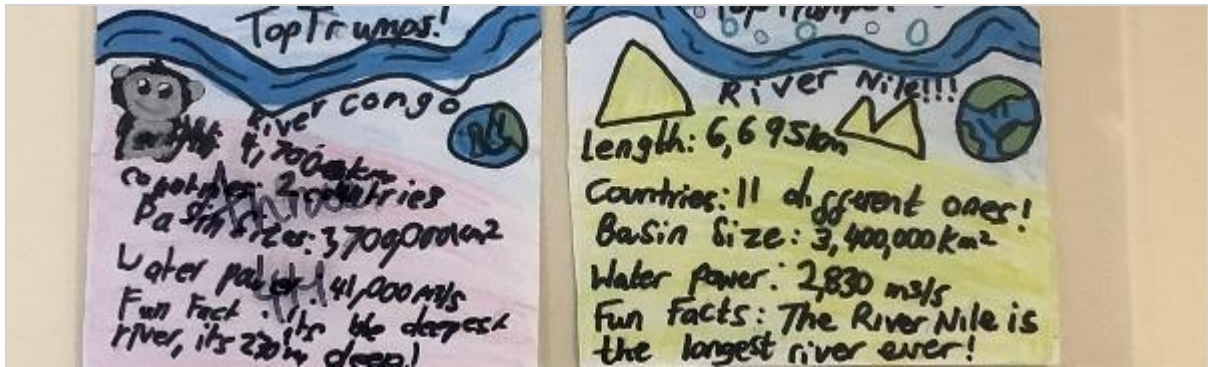 TopTrumps!
River Congo
Length: 4,700km
countries: 2 countries
Basin Size: 3,709,000km²
Water power: 41,000 m³/s
Fun Fact: it's the deepest
river, its 230m deep!
TopTrumps!
River Nile!!!
Length: 6,695km
Countries: 11 different ones!
Basin Size: 3,400,000km²
Water power: 2,830 m³/s
Fun Facts: The River Nile is
the longest river ever!